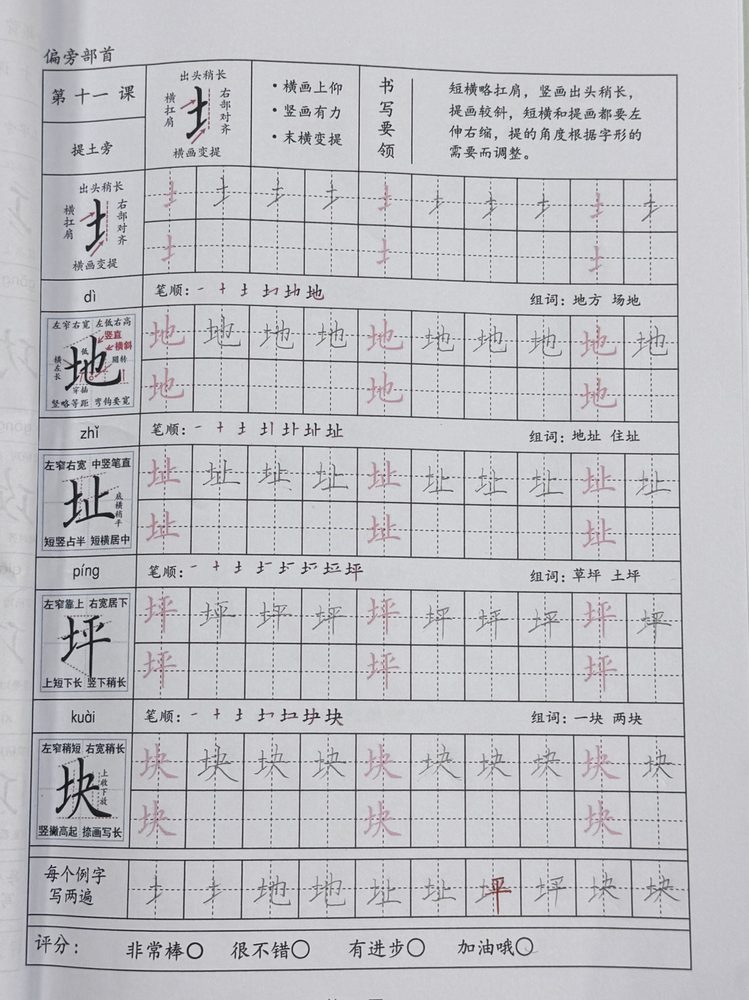 偏旁部首
第十一课
提土旁
出头稍长
横扛肩
右部对齐
横画变提
·横画上仰
·竖画有力
·末横变提
书写要领
短横略扛肩，竖画出头稍长，
提画较斜，短横和提画都要左
伸右缩，提的角度根据字形的
需要而调整。
出头稍长
横扛肩
右部对齐
横画变提
dì
笔顺：
组词：地方 场地
左窄右宽 左低右高
竖直
横斜
低
横左长
圆转
穿插
地
竖略等距 弯钩要宽
地 地 地 地 地 地 地 地 地 地
地 地 地
zhǐ
笔顺：
组词：地址 住址
左窄右宽 中竖笔直
址
底横稍平
短竖占半 短横居中
址 址 址 址 址 址 址 址 址 址
址 址 址
píng
笔顺：
组词：草坪 土坪
左窄靠上 右宽居下
坪
上短下长 竖下稍长
坪 坪 坪 坪 坪 坪 坪 坪 坪 坪
坪 坪 坪
kuài
笔顺：
组词：一块 两块
左窄稍短 右宽稍长
块
上收下放
竖撇高起 捺画写长
块 块 块 块 块 块 块 块 块 块
块 块 块
每个例字
写两遍
地 地 址 址 坪 坪 块 块
评分： 非常棒○ 很不错○ 有进步○ 加油哦○